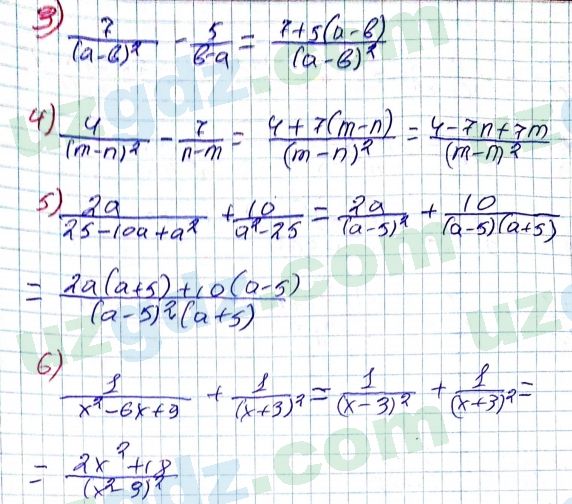 3) 7/(a-b)² - 5/(b-a) = (7+5(a-b))/(a-b)²
4) 4/(m-n)² - 7/(n-m) = (4+7(m-n))/(m-n)² = (4-7n+7m)/(m-m)²
5) 2a/(25-10a+a²) + 10/(a²-25) = 2a/(a-5)² + 10/((a-5)(a+5))
= (2a(a+5)+10(a-5))/((a-5)²(a+5))
6) 1/(x²-6x+9) + 1/(x+3)² = 1/(x-3)² + 1/(x+3)² =
= (2x²+18)/(x²-9)²
uzgdz.com